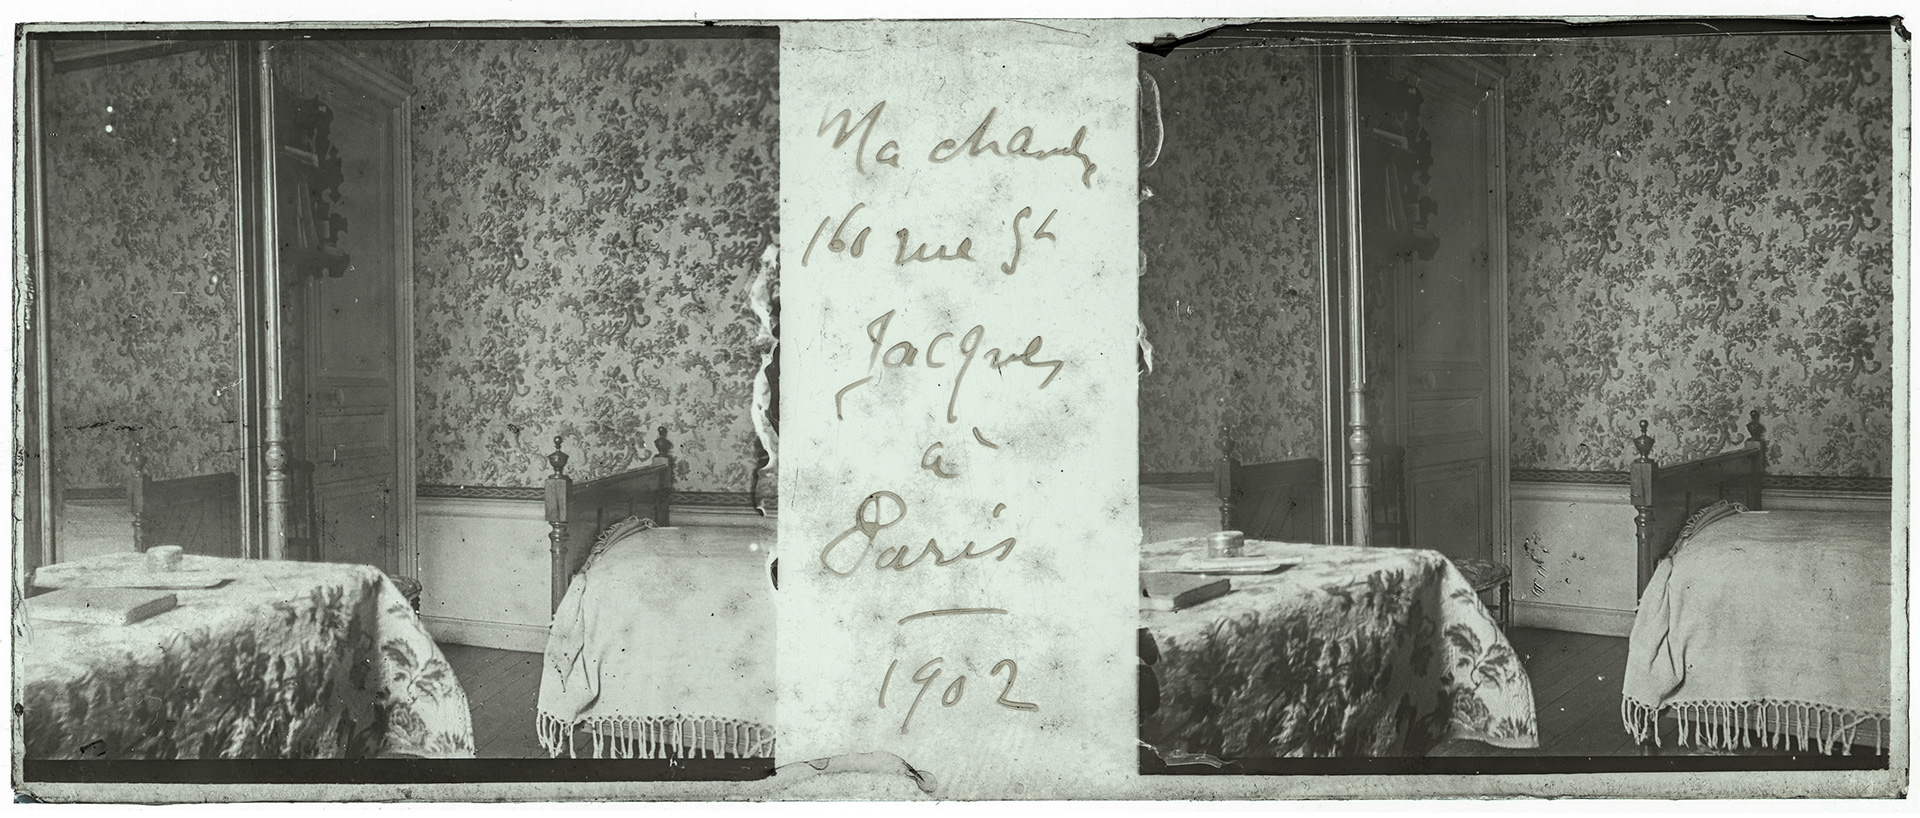 Ma chambre
160 rue St
Jacques
à
Paris
1902